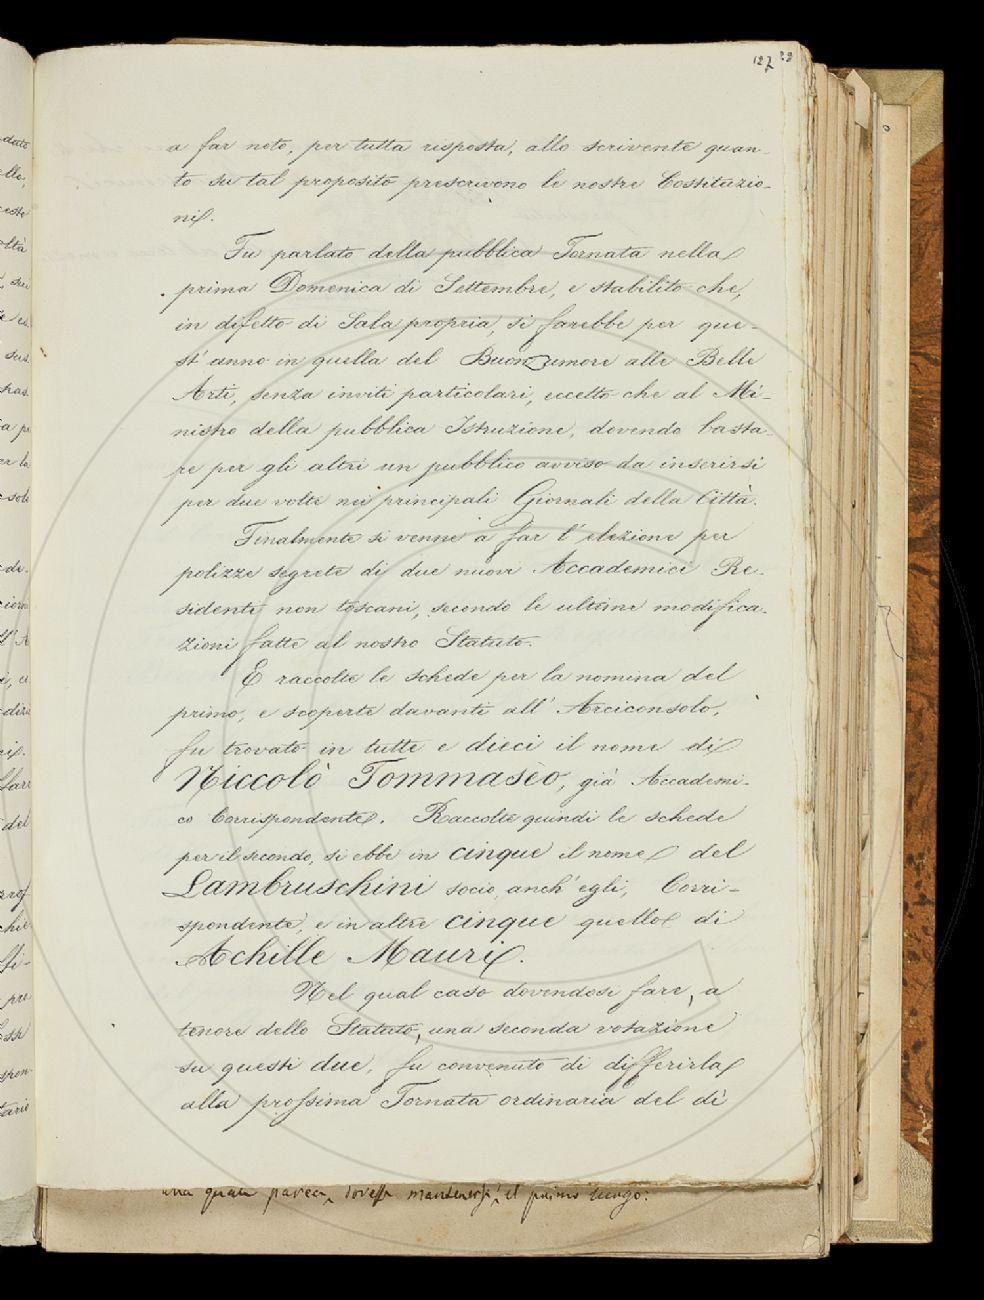 127
a far noto, per tutta risposta, allo scrivente quan-
to su tal proposito prescrivono le nostre Costituzio-
ni.
Fu parlato della pubblica Tornata nella
prima Domenica di Settembre, e stabilito che,
in difetto di Sala propria, si farebbe per que-
st' anno in quella del Buon umore alle Belle
Arti, senza inviti particolari, eccetto che al Mi-
nistro della pubblica Istruzione, dovendo basta-
re per gli altri un pubblico avviso da inserirsi
per due volte nei principali Giornali della Città.
Finalmente si venne a far l' elezione per
polizze segrete di due nuovi Accademici Re-
sidenti non toscani, secondo le ultime modifica-
zioni fatte al nostro Statuto.
E raccolte le schede per la nomina del
primo, e scoperte davanti all' Arciconsolo,
fu trovato in tutte e dieci il nome di
Niccolò Tommasèo, già Accademi-
co Corrispondente. Raccolte quindi le schede
per il secondo, si ebbe in cinque il nome del
Lambruschini socio, anch' egli, Corri-
spondente, e in altre cinque quello di
Achille Mauri.
Nel qual caso dovendosi fare, a
tenore dello Statuto, una seconda votazione
su questi due, fu convenuto di differirla
alla prossima Tornata ordinaria del dì
il primo luogo.